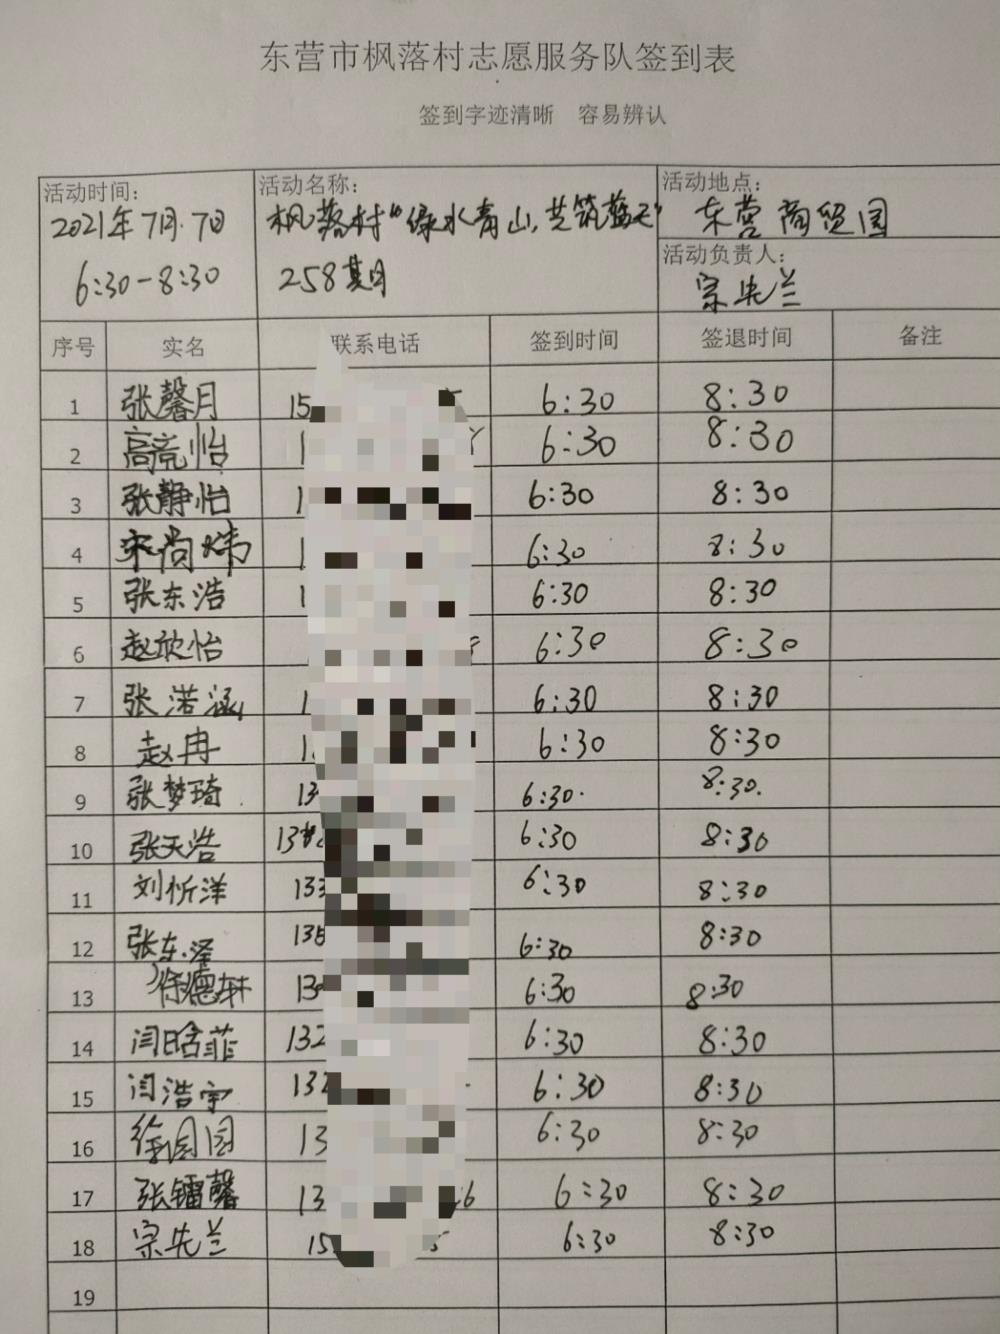 东营市枫落村志愿服务队签到表
签到字迹清晰 容易辨认
活动时间: 活动名称: 活动地点:
2021年7月7日 枫落村“绿水青山,共筑蓝天” 东营商贸园
6:30-8:30 258期 活动负责人:
宗先兰
序号 实名 联系电话 签到时间 签退时间 备注
1 张馨月 15 6:30 8:30
2 高亮怡 1 6:30 8:30
3 张静怡 1 6:30 8:30
4 宋尚炜 1 6:30 8:30
5 张东浩 1 6:30 8:30
6 赵欣怡 6:30 8:30
7 张涵 1 6:30 8:30
8 赵冉 1 6:30 8:30
9 张梦琦 13 6:30 8:30
10 张天浩 13 6:30 8:30
11 刘忻洋 133 6:30 8:30
12 张东泽 13 6:30 8:30
13 徐德轩 13 6:30 8:30
14 闫晗菲 132 6:30 8:30
15 闫浩宇 132 6:30 8:30
16 徐园园 13 6:30 8:30
17 张镭馨 13 6 6:30 8:30
18 宗先兰 15 5 6:30 8:30
19